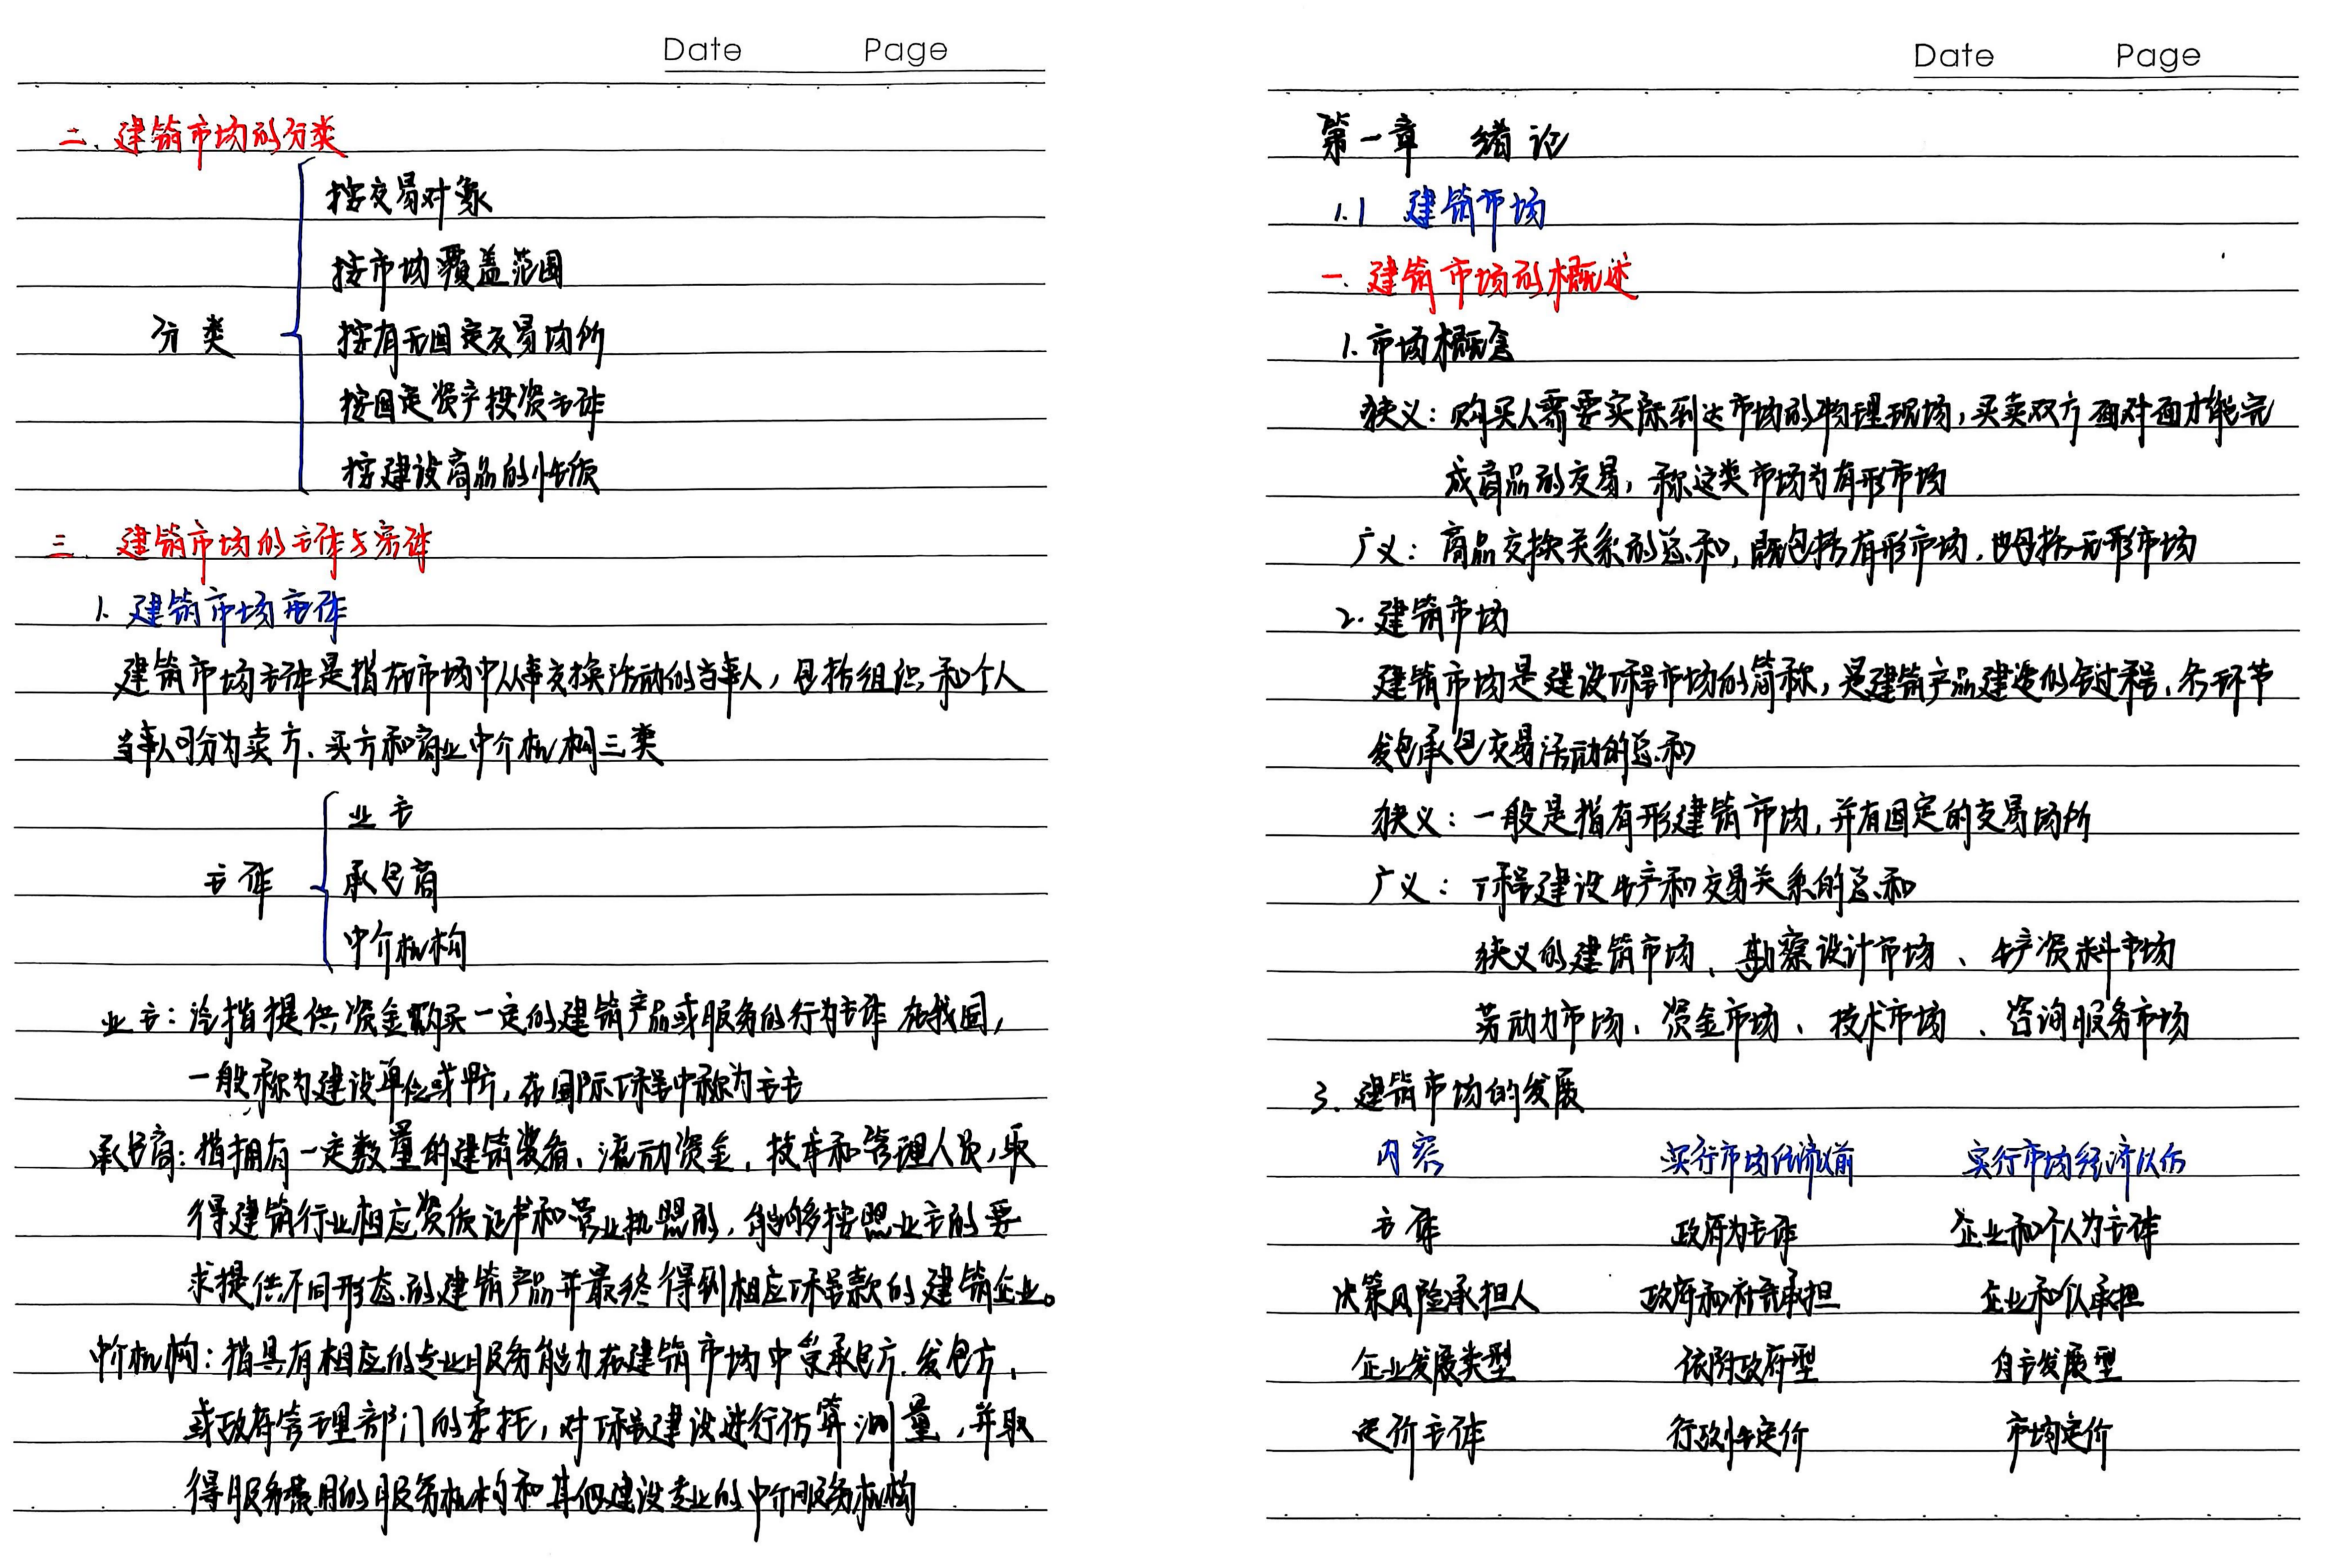 Date Page
二、建筑市场的分类
按交易对象
按市场覆盖范围
分类
按有无固定交易场所
按固定资产投资主体
按建设商品的性质
三、建筑市场的主体与客体
1. 建筑市场主体
建筑市场主体是指在市场中从事交换活动的当事人，包括组织和个人
当事人可分为卖方、买方和商业中介机构三类
业主
主体
承包商
中介机构
业主：泛指提供资金购买一定的建筑产品或服务的行为主体 在我国，
一般称为建设单位或甲方，在国际工程中称为业主
承包商：指拥有一定数量的建筑装备、流动资金，技术和管理人员，取
得建筑行业相应资质证书和营业执照的，能够按照业主的要
求提供不同形态的建筑产品并最终得到相应工程款的建筑企业。
中介机构：指具有相应的专业服务能力在建筑市场中受承包方、发包方、
或政府管理部门的委托，对工程建设进行估算测量，并取
得服务费用的服务机构和其他建设专业的中介服务机构
Date Page
第一章 绪论
1.1 建筑市场
一、建筑市场的概述
1. 市场概念
狭义：购买人需要实际到达市场的物理现场，买卖双方面对面才能完
成商品的交易，称这类市场为有形市场
广义：商品交换关系的总和，既包括有形市场，也包括无形市场
2. 建筑市场
建筑市场是建设工程市场的简称，是建筑产品建造的全过程，各环节
发包承包交易活动的总和
狭义：一般是指有形建筑市场，并有固定的交易场所
广义：工程建设生产和交易关系的总和
狭义的建筑市场、勘察设计市场、生产资料市场
劳动力市场、资金市场、技术市场、咨询服务市场
3. 建筑市场的发展
内容 实行市场经济以前 实行市场经济以后
主体 政府为主体 企业和个人为主体
决策风险承担人 政府和社会承担 企业和个人承担
企业发展类型 依附政府型 自主发展型
定价主体 行政性定价 市场定价